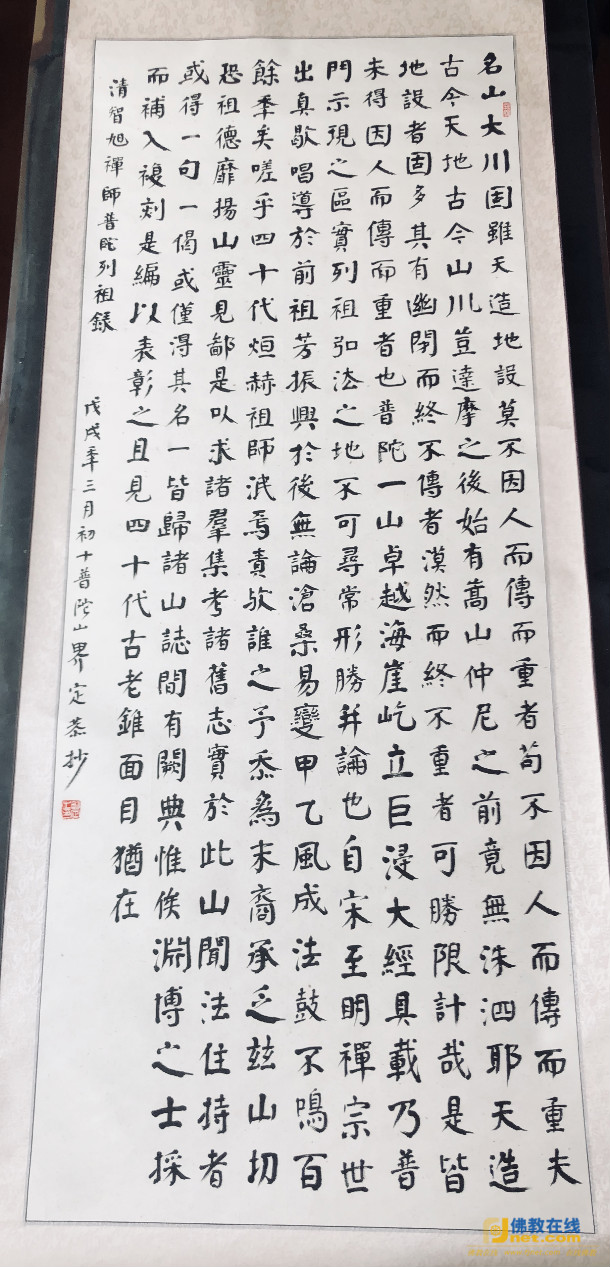 名山大川固雖天造地設莫不因人而傳而重者苟不因人而傳而重夫
古今天地古今山川豈達摩之後始有嵩山仲尼之前竟無洙泗耶天造
地設者固多其有幽閉而終不傳者漠然而終不重者可勝限計哉是皆
未得因人而傳而重者也普陀一山卓越海崖屹立巨浸大經具載乃普
門示現之區實列祖弘法之地不可尋常形勝并論也自宋至明禪宗世
出真歇唱導於前祖芳振興於後無論滄桑易變甲乙風成法鼓不鳴百
餘季矣嗟乎四十代烜赫祖師泯焉責欤誰之予忝為末裔承乏玆山切
恐祖德靡揚山靈見鄙是以求諸羣集考諸舊志實於此山聞法住持者
或得一句一偈或僅得其名一皆歸諸山誌間有闕典惟俟淵博之士採
而補入複刻是編以表彰之且見四十代古老錐面目猶在
清智旭禪師普陀列祖錄
戊戌季三月初十普陀山界定恭抄
佛教在线
net.com